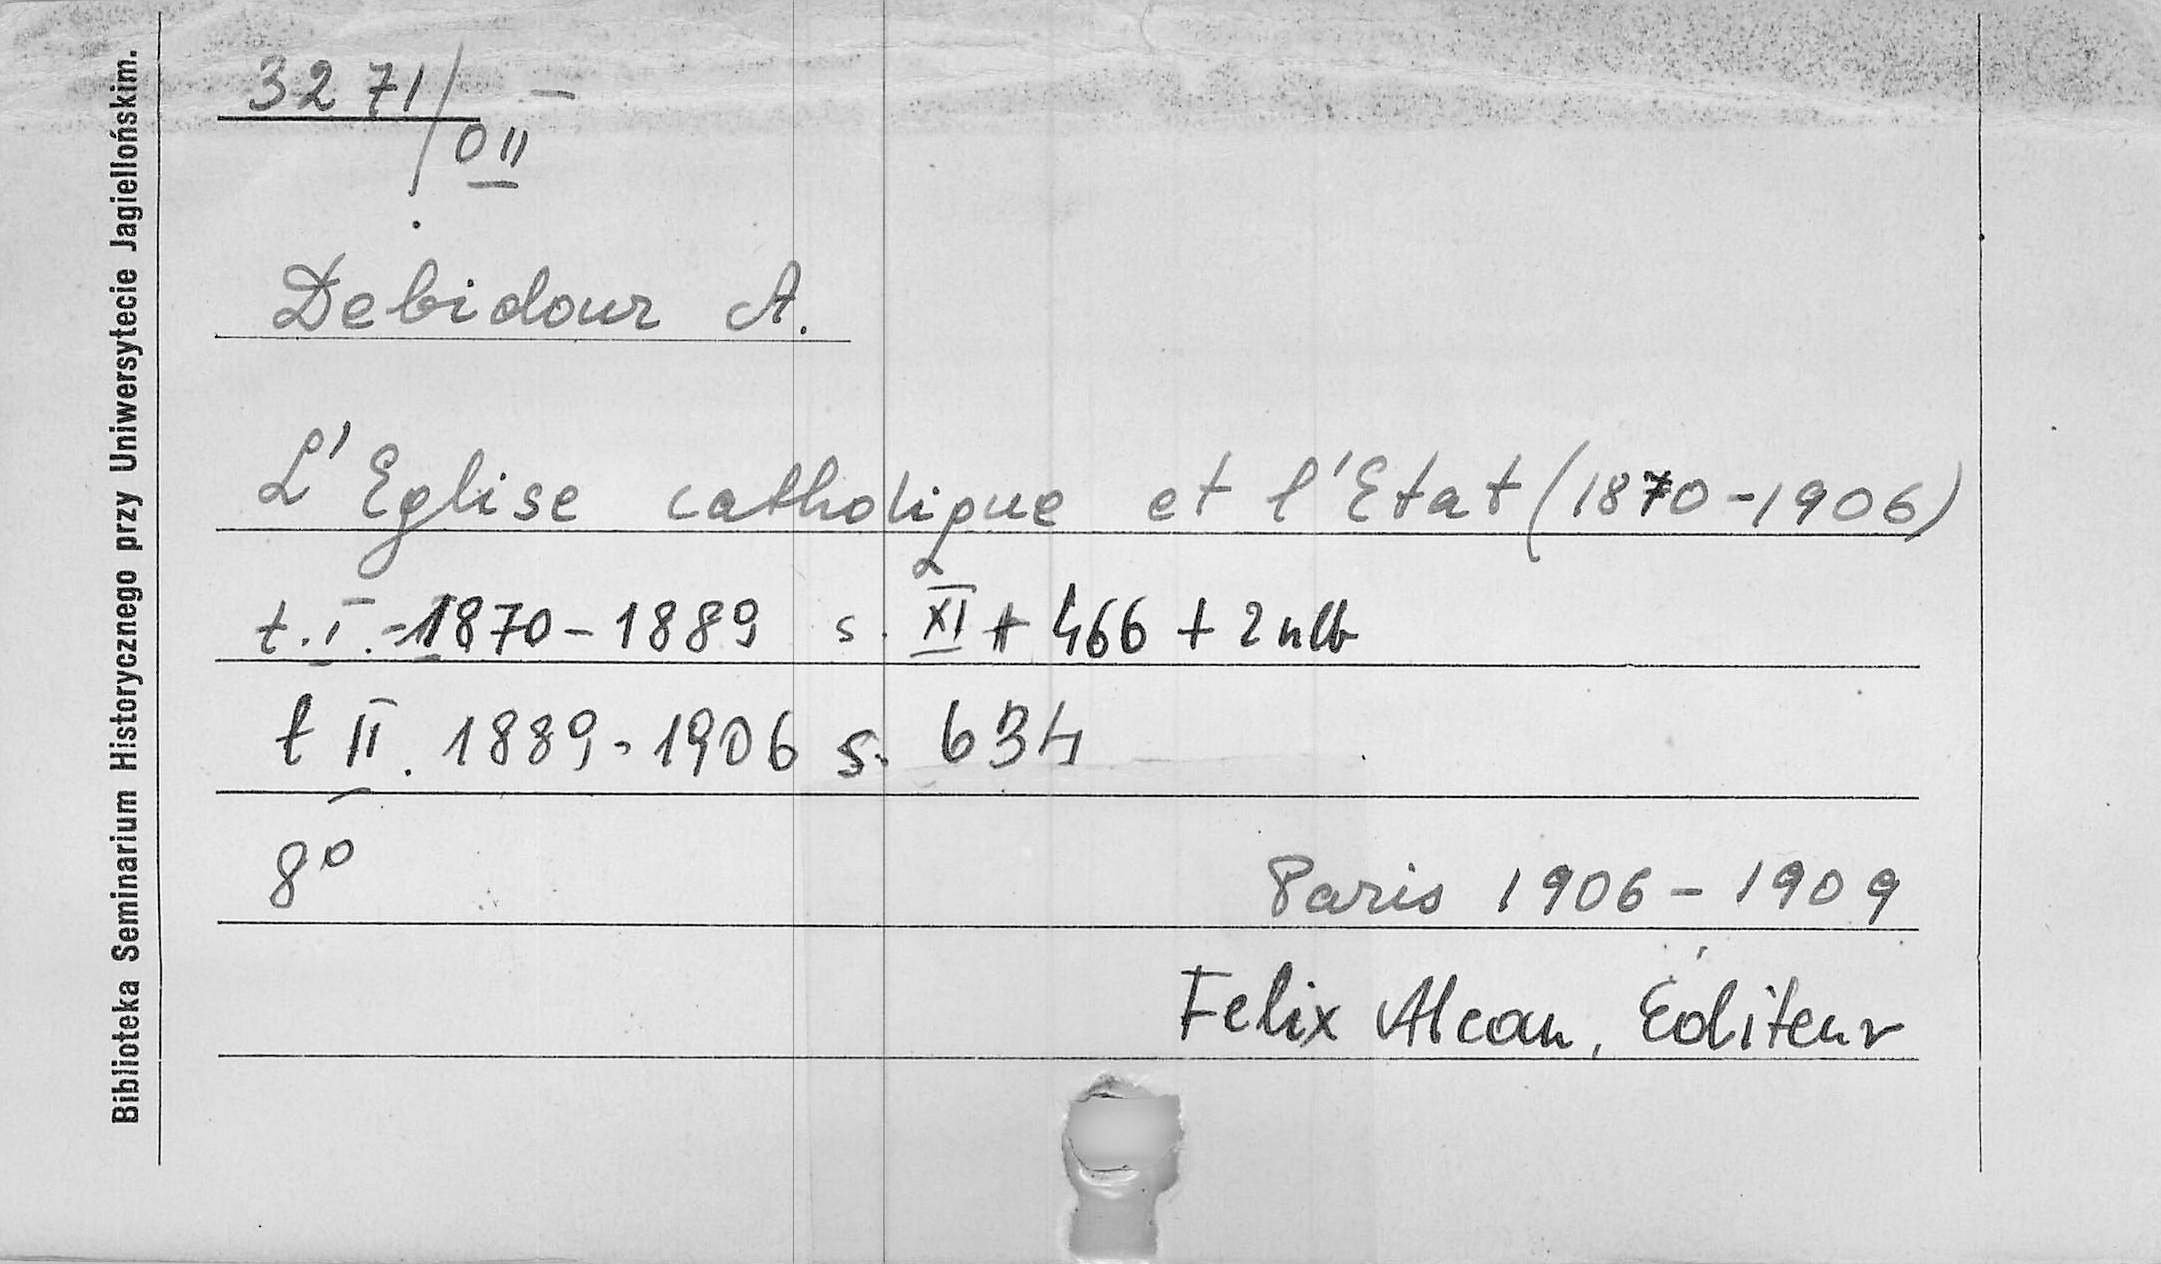 Biblioteka Seminarium Historycznego przy Uniwersytecie Jagiellońskim.
3271/
0 II
Debidour A.
L'Eglise catholique et l'Etat (1870-1906)
t. I. - 1870 - 1889 s. XI + 466 + 2 nlb
t II. 1889 - 1906 s. 634
8°
Paris 1906 - 1909
Felix Alcan, Éditeur